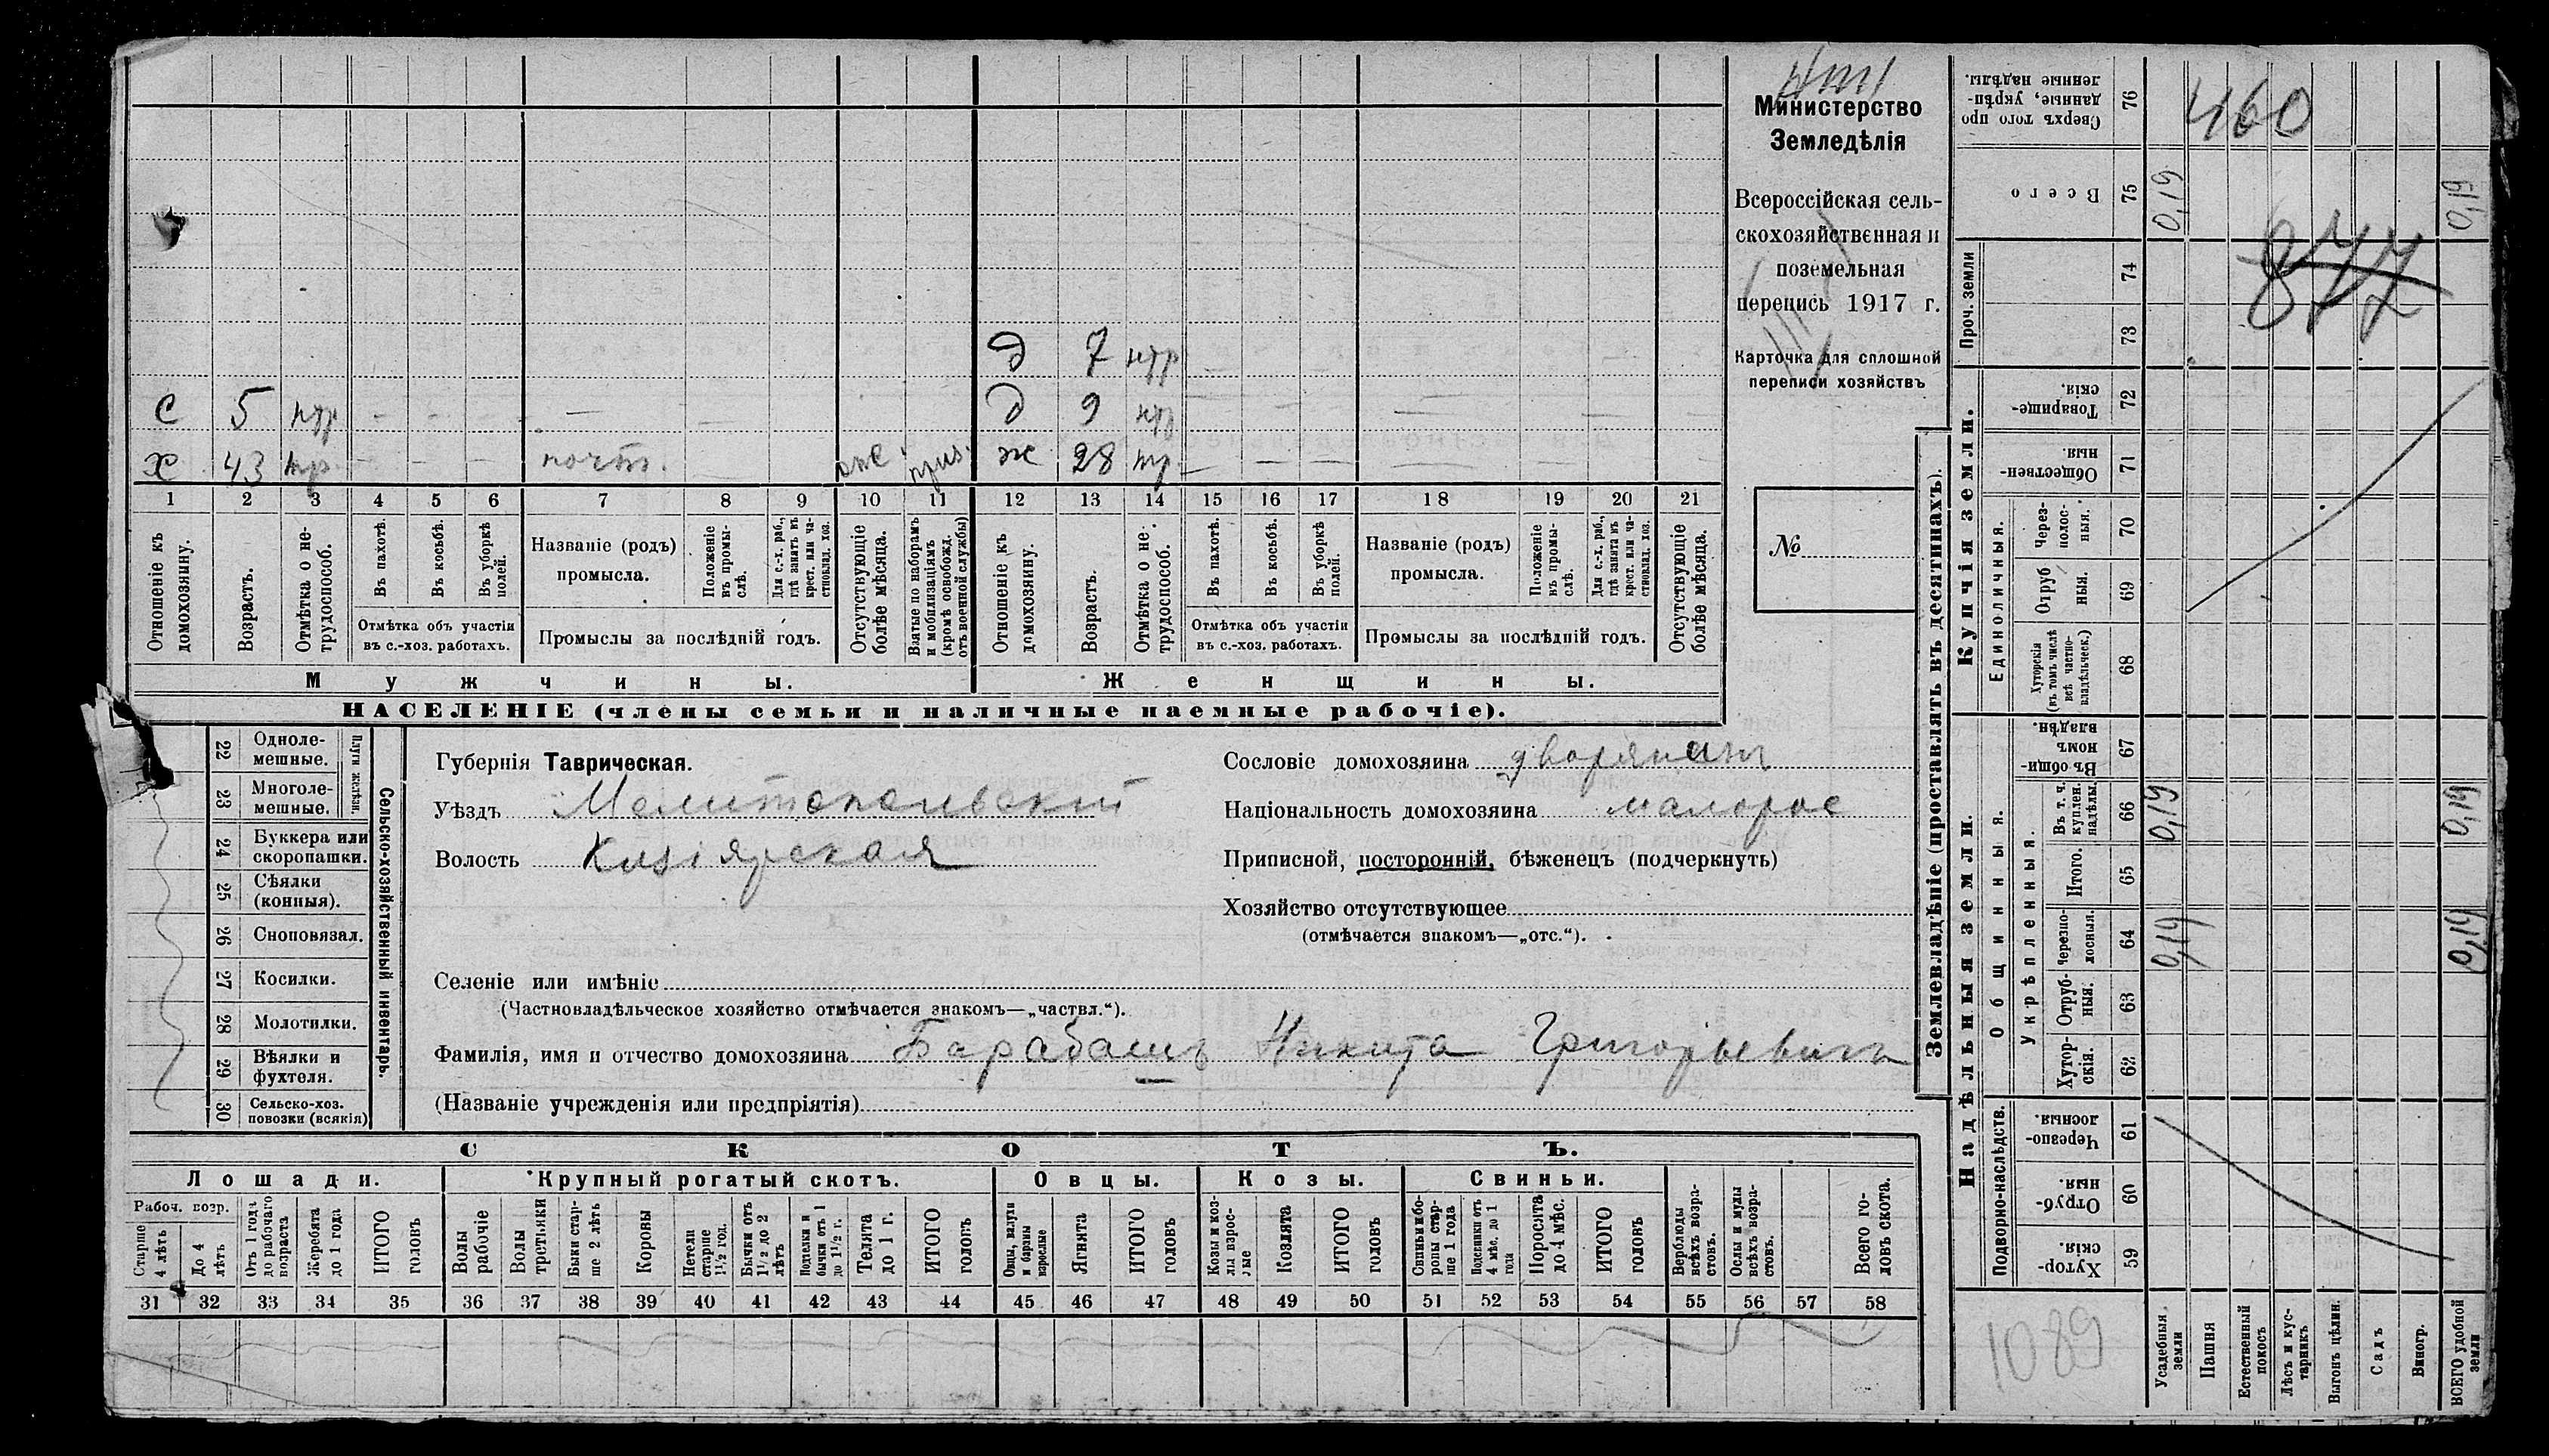 Министерство
Земледѣлія
Всероссійская сель-
скохозяйственная и
поземельная
перепись 1917 г.
Карточка для сплошной
переписи хозяйствъ
№
д 7 нтр
С 5 нтр - - - — — д 9 нтр
Х 43 тр. - - - почт. — отс. ж 28 тр. — — — — — —
1 2 3 4 5 6 7 8 9 10 11 12 13 14 15 16 17 18 19 20 21
Отношеніе къ домохозяину.
Возрастъ.
Отмѣтка о не-трудоспособ.
Въ пахотѣ.
Въ косьбѣ.
Въ уборкѣ полей.
Отмѣтка объ участіи
въ с.-хоз. работахъ.
Названіе (родъ)
промысла.
Положеніе въ промы-слѣ.
Для с.-х. раб., гдѣ занятъ въ крест. или ча-стновлад. хоз.
Промыслы за послѣдній годъ.
Отсутствующіе болѣе мѣсяца.
Взятые по наборамъ и мобилизаціямъ (кромѣ освобожд. отъ военной службы)
Отношеніе къ домохозяину.
Возрастъ.
Отмѣтка о не-трудоспособ.
Въ пахотѣ.
Въ косьбѣ.
Въ уборкѣ полей.
Отмѣтка объ участіи
въ с.-хоз. работахъ.
Названіе (родъ)
промысла.
Положеніе въ промы-слѣ.
Для с.-х. раб., гдѣ занятъ въ крест. или ча-стновлад. хоз.
Промыслы за послѣдній годъ.
Отсутствующіе болѣе мѣсяца.
Мужчины. Женщины.
НАСЕЛЕНІЕ (члены семьи и наличные наемные рабочіе).
Сельско-хозяйственный инвентарь.
Плуги желѣзн.
22 Одноле-мешные.
23 Многоле-мешные.
24 Буккера или скоропашки.
25 Сѣялки (конныя).
26 Сноповязал.
27 Косилки.
28 Молотилки.
29 Вѣялки и фухтеля.
30 Сельско-хоз. повозки (всякія)
Губернія Таврическая.
Уѣздъ Мелитопольскій
Волость Кизіярская
Сословіе домохозяина дворянинъ
Національность домохозяина малорос
Приписной, посторонній, бѣженецъ (подчеркнуть)
Хозяйство отсутствующее
(отмѣчается знакомъ—„отс.“).
Селеніе или имѣніе
(Частновладѣльческое хозяйство отмѣчается знакомъ—„частвл.“).
Фамилія, имя и отчество домохозяина Барабашъ Никита Григорьевичъ
(Названіе учрежденія или предпріятія)
СКОТЪ.
Лошади. Крупный рогатый скотъ. Овцы. Козы. Свиньи.
Рабоч. возр.
Старше 4 лѣтъ
До 4 лѣтъ
Отъ 1 года до рабочаго возраста
Жеребята до 1 года
ИТОГО головъ
Волы рабочіе
Волы третьяки
Быки стар-ше 2 лѣтъ
Коровы
Нетели старше 1½ год.
Бычки отъ 1½ до 2 лѣтъ
Подтелки и бычки отъ 1 до 1½ г.
Телята до 1 г.
ИТОГО головъ
Овцы, валухи и бараны взрослые
Ягнята
ИТОГО головъ
Козы и коз-лы взрос-лые
Козлята
ИТОГО головъ
Свиньи и бо-ровы стар-ше 1 года
Подсвинки отъ 4 мѣс. до 1 года
Поросята до 4 мѣс.
ИТОГО головъ
Верблюды всѣхъ возра-стовъ.
Ослы и мулы всѣхъ возра-стовъ.
Всего го-ловъ скота.
31 32 33 34 35 36 37 38 39 40 41 42 43 44 45 46 47 48 49 50 51 52 53 54 55 56 57 58
Землевладѣніе (проставлять въ десятинахъ).
Купчія земли.
Надѣльныя земли.
Сверхъ того про-данные, укрѣп-ленные надѣлы. 76
460
Всего 75 0,19 0,19
Проч. земли 74
877
73
Товарище-скія. 72
Обществен-ныя. 71
Единоличныя.
Через-полос-ныя. 70
Отруб ныя. 69
Хуторскія (въ томъ числѣ всѣ частно-владѣльческ.) 68
Общинныя.
Въ общи-номъ владѣн. 67
Укрѣпленныя.
Въ т. ч. куплен. надѣлы. 66 0,19 0,19
Итого. 65
Черезпо-лосныя. 64 0,19 0,19
Отруб-ныя. 63
Хутор-скія. 62
Подворно-наслѣдств.
Черезпо-лосныя. 61
Отруб-ныя. 60
Хутор-скія. 59
1089
Усадебныя земли
Пашня
Естественный покосъ
Лѣсъ и кус-тарникъ
Выгонъ цѣлин.
Садъ
Виногр.
ВСЕГО удобной земли